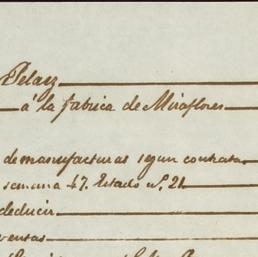 Pelaez
á la fabrica de Miraflores
de manufacturas segun contrata
semana 47. Estado nº. 21
deducir
ventas